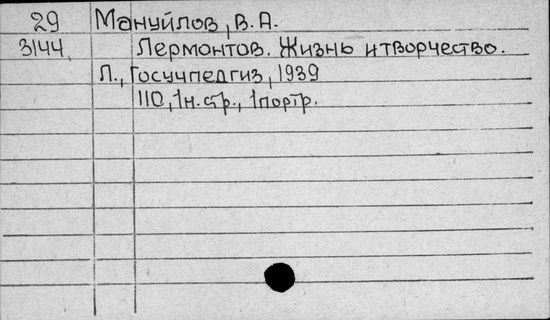 29 Мануйлов, В.А.
3144 Лермонтов. Жизнь и творчество.
Л., Госучпедгиз, 1939
110, 1н.стр., 1портр.